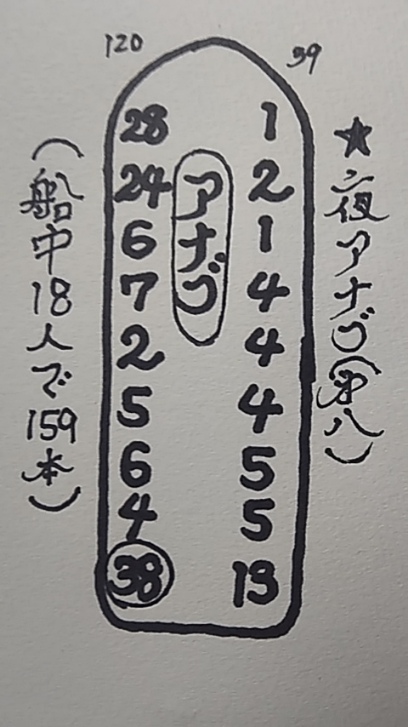 120
39
★夜アナゴ(第八)
1
2
1
4
4
4
5
5
13
アナゴ
28
24
6
7
2
5
6
4
38
(船中18人で159本)